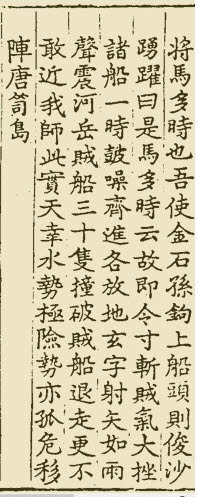 將馬多時也吾使金石孫鉤上船頭則俊沙
踴躍曰是馬多時云故即令寸斬賊氣大挫
諸船一時皷噪齊進各放地玄字射矢如雨
聲震河岳賊船三十隻撞破賊船退走更不
敢近我師此實天幸水勢極險勢亦孤危移
陣唐笥島